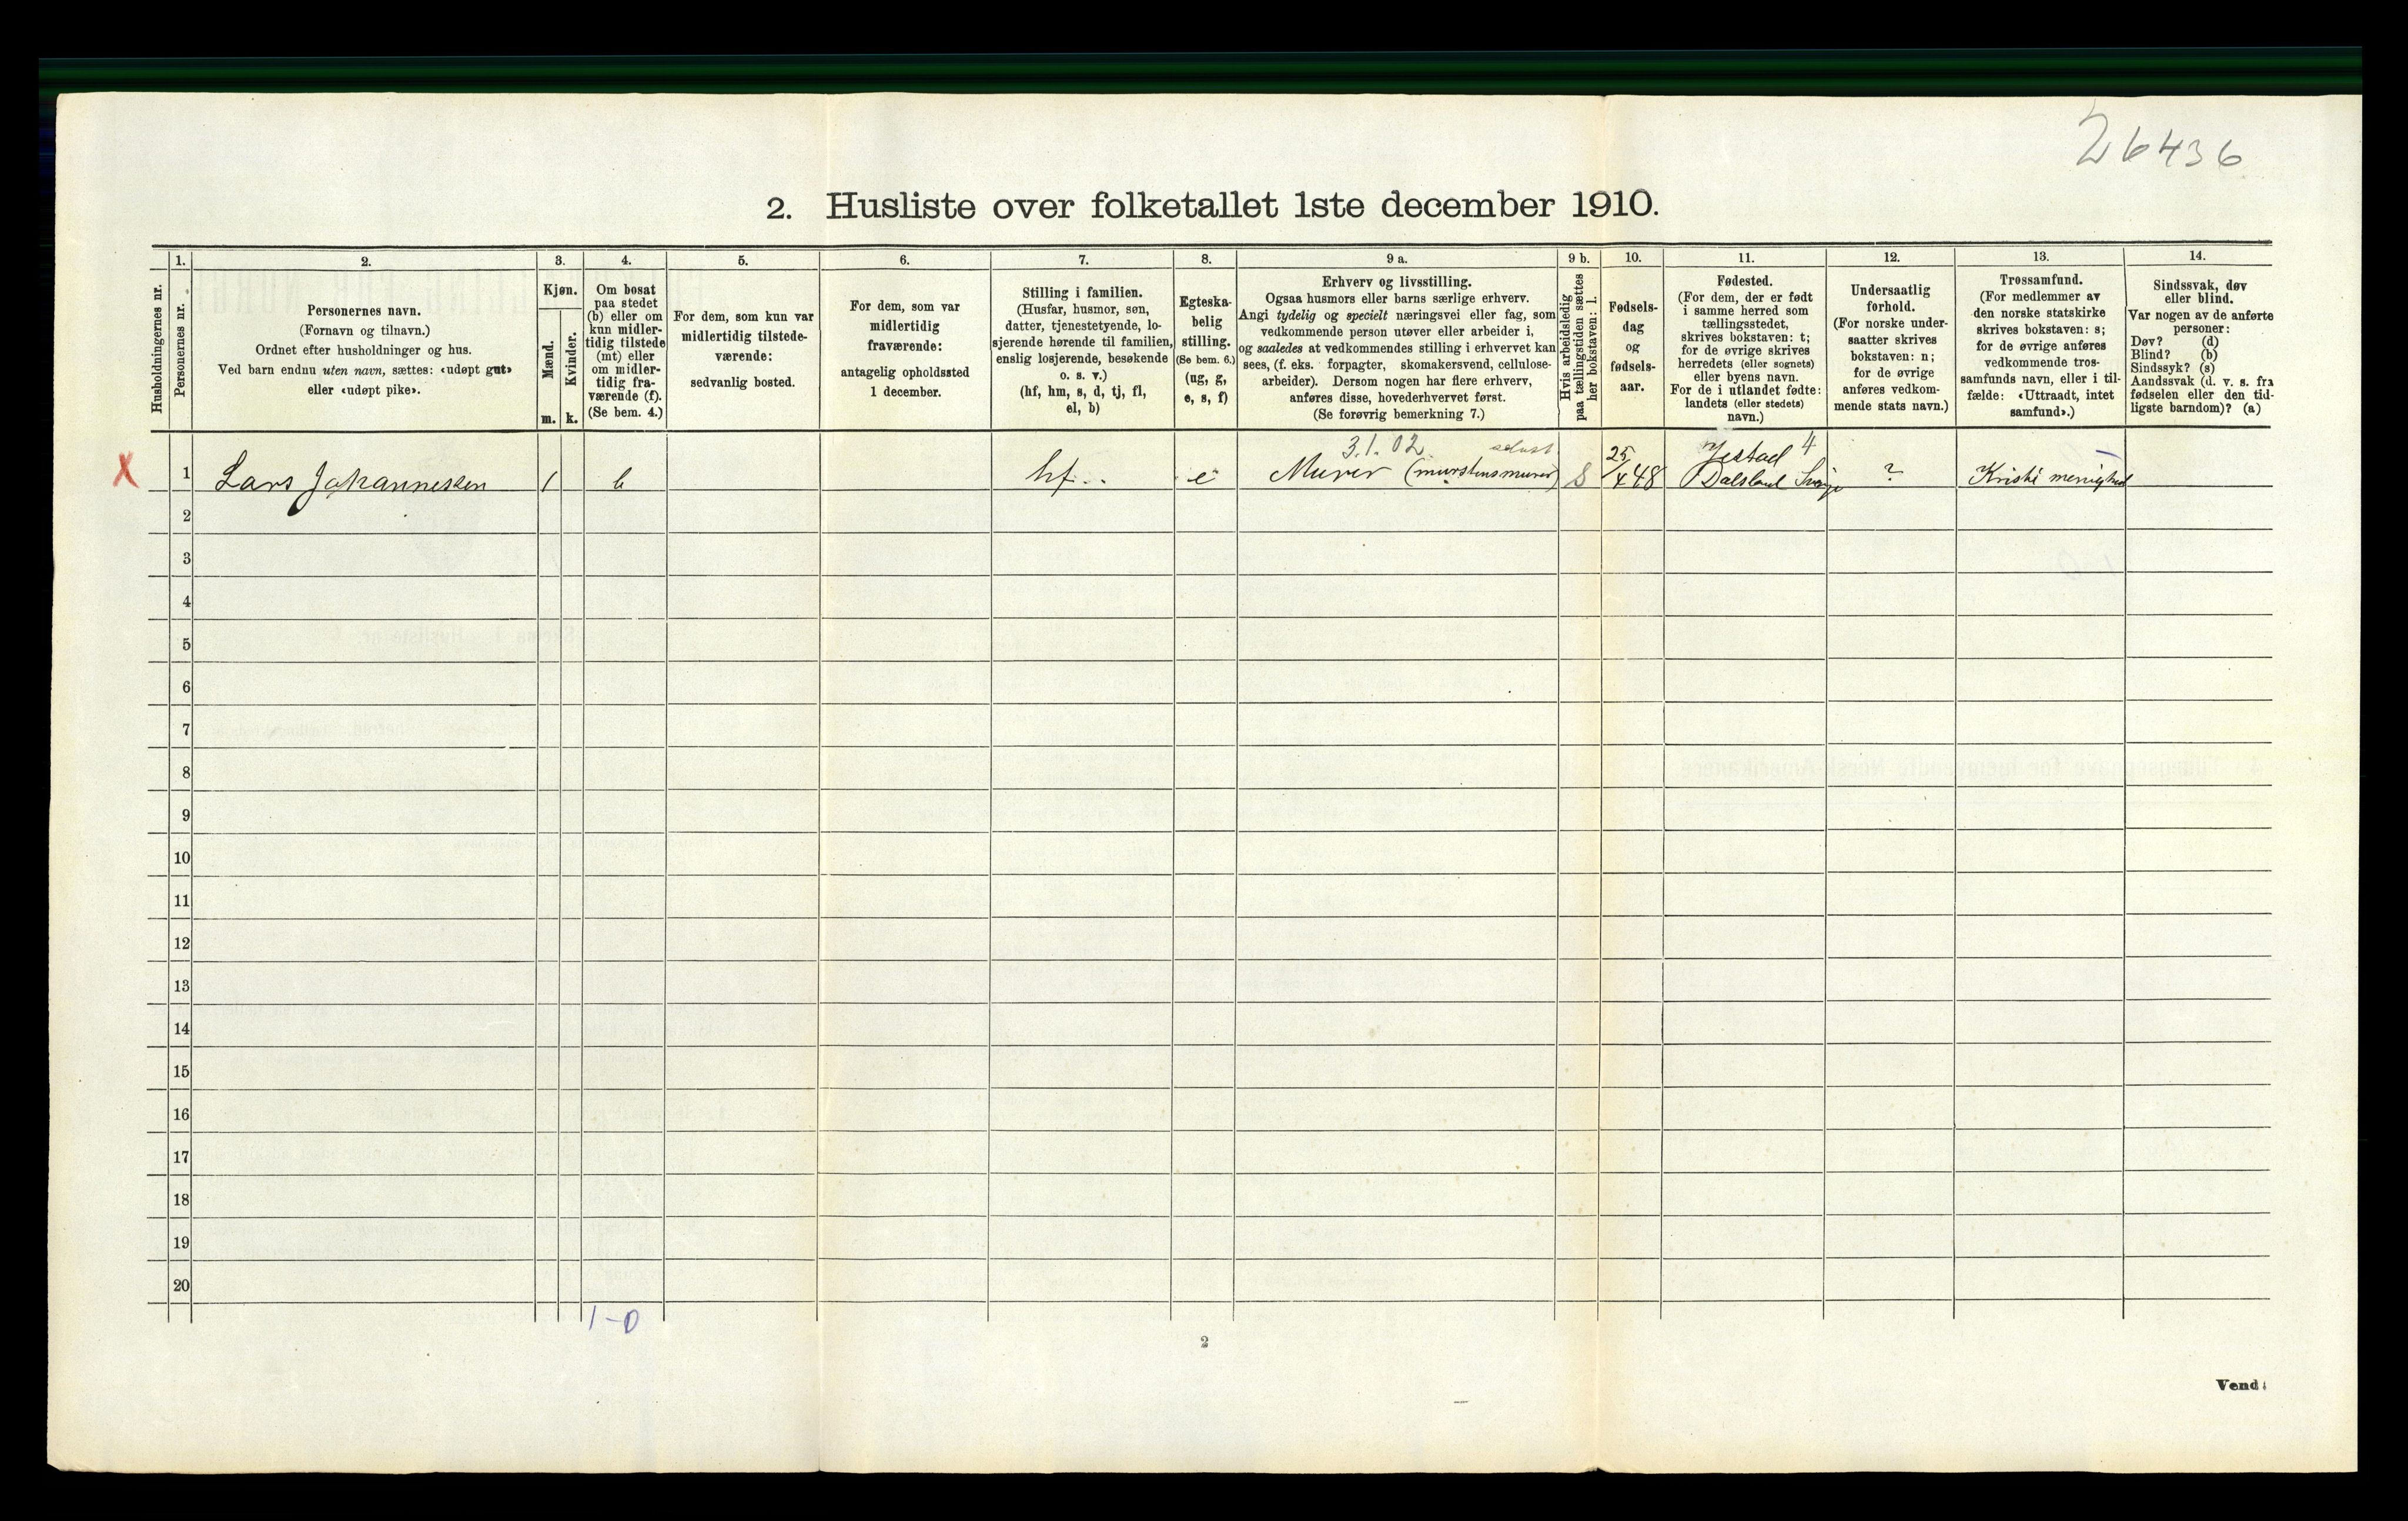 26436
2. Husliste over folketallet 1ste december 1910.
Husholdningernes nr.
1.
Personernes nr.
2.
Personernes navn.
(Fornavn og tilnavn.)
Ordnet efter husholdninger og hus.
Ved barn endnu uten navn, sættes: «udøpt gut»
eller «udøpt pike».
3.
Kjøn.
Mænd.
m.
Kvinder.
k.
4.
Om bosat
paa stedet
(b) eller om
kun midler-
tidig tilstede
(mt) eller
om midler-
tidig fra-
værende (f).
(Se bem. 4.)
5.
For dem, som kun var
midlertidig tilstede-
værende:
sedvanlig bosted.
6.
For dem, som var
midlertidig
fraværende:
antagelig opholdssted
1 december.
7.
Stilling i familien.
(Husfar, husmor, søn,
datter, tjenestetyende, lo-
sjerende hørende til familien,
enslig losjerende, besøkende
o. s. v.)
(hf, hm, s, d, tj, fl,
el, b)
8.
Egteska-
belig
stilling.
(Se bem. 6.)
(ug, g,
e, s, f)
9 a.
Erhverv og livsstilling.
Ogsaa husmors eller barns særlige erhverv.
Angi tydelig og specielt næringsvei eller fag, som
vedkommende person utøver eller arbeider i,
og saaledes at vedkommendes stilling i erhvervet kan
sees, (f. eks. forpagter, skomakersvend, cellulose-
arbeider). Dersom nogen har flere erhverv,
anføres disse, hovederhvervet først.
(Se forøvrig bemerkning 7.)
9 b.
Hvis arbeidsledig
paa tællingstiden sættes
her bokstaven: l.
10.
Fødsels-
dag
og
fødsels-
aar.
11.
Fødested.
(For dem, der er født
i samme herred som
tællingsstedet,
skrives bokstaven: t;
for de øvrige skrives
herredets (eller sognets)
eller byens navn.
For de i utlandet fødte:
landets (eller stedets)
navn.)
12.
Undersaatlig
forhold.
(For norske under-
saatter skrives
bokstaven: n;
for de øvrige
anføres vedkom-
mende stats navn.)
13.
Trossamfund.
(For medlemmer av
den norske statskirke
skrives bokstaven: s;
for de øvrige anføres
vedkommende tros-
samfunds navn, eller i til-
fælde: «Uttraadt, intet
samfund».)
14.
Sindssvak, døv
eller blind.
Var nogen av de anførte
personer:
Døv? (d)
Blind? (b)
Sindssyk? (s)
Aandssvak (d. v. s. fra
fødselen eller den tid-
ligste barndom)? (a)
3.1.02 selvst. 4
X 1 Lars Johannessen 1 b hf. e Murer (murstensmurer) S 25/4 48 Dalsland ? Kristi menighed
2
3
4
5
6
7
8
9
10
11
12
13
14
15
16
17
18
19
20
1-0
2
Vend!